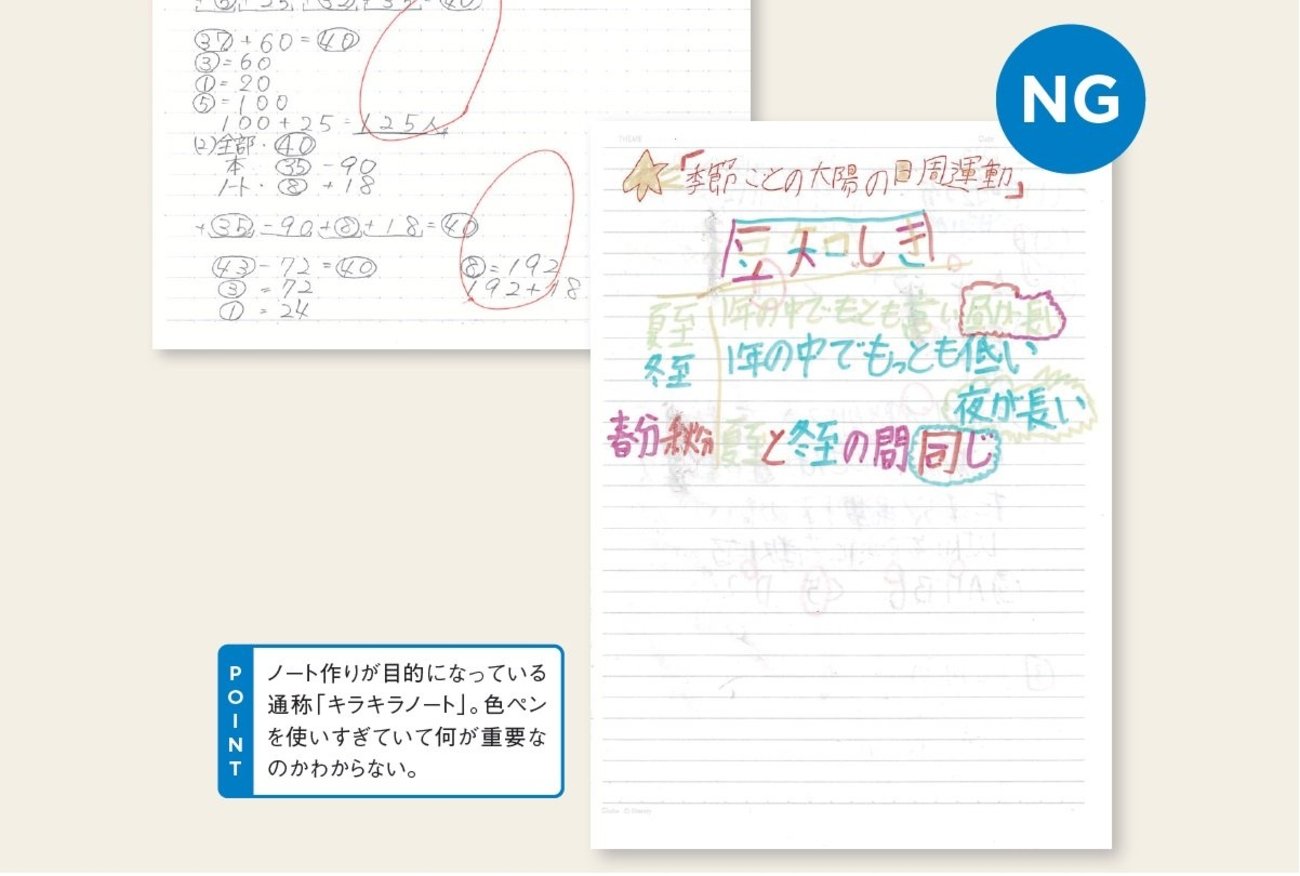 ㊲+60=㊵
③=60
①=20
⑤=100
100+25=125人
(2)全部・㊵
本 ㉟-90
ノート・⑧+18
+㉟-90+⑧+18=㊵
㊸-72=㊵
③=72
①=24
⑧=192
192+18
NG
THEME
Date
「季節ごとの太陽の日周運動」
豆知しき
夏至 1年の中でもとも高い 昼が長い
冬至 1年の中でもっとも低い
夜が長い
春分秋分 夏至と冬至の間 同じ
POINT
ノート作りが目的になっている
通称「キラキラノート」。色ペン
を使いすぎていて何が重要な
のかわからない。